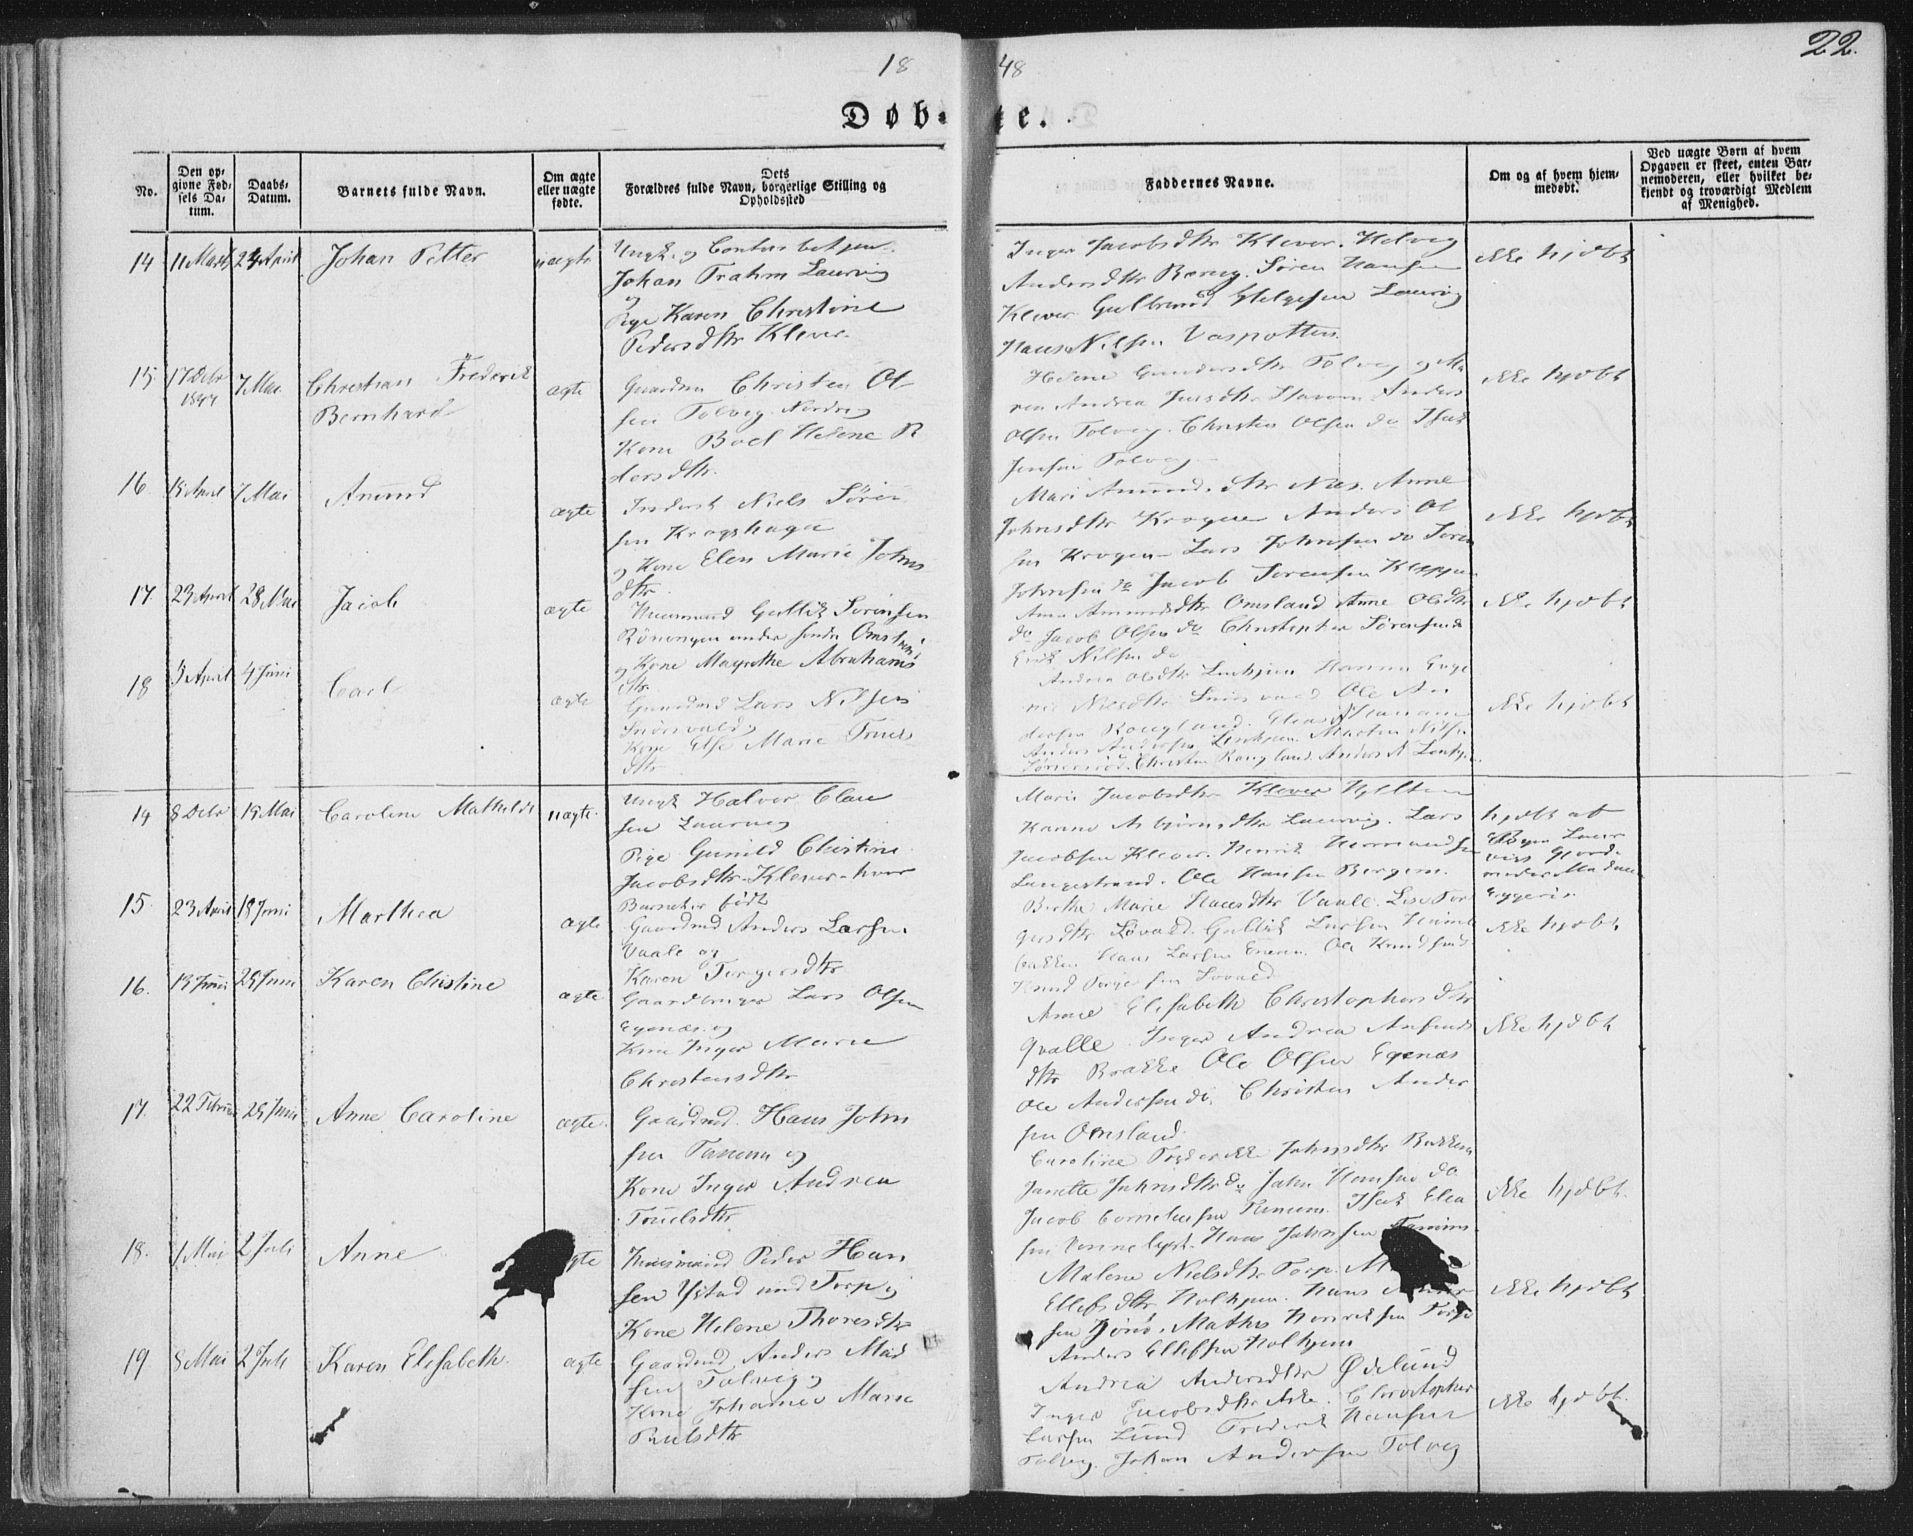 1848
22.
Døbte.
No.
Den opgivne Fødsels Datum.
Daabs-Datum.
Barnets fulde Navn.
Om ægte eller uægte fødte.
Dets Forældres fulde Navn, borgerlige Stilling og Opholdssted
Faddernes Navne.
Om og af hvem hjemmedøbt.
Ved uægte Børn af hvem Opgaven er skeet, enten Barnemoderen, eller hvilket bekiendt og troværdigt Medlem af Menighed.
14 11 Marts 24 April Johan Petter uægte
Johan Frahm Laurvig
og
Pige Karen Christine
Pedersdtr Klever
Inger Jacobsdtr Klever. Helvig
Andersdtr Søren Hansen
Klever Gulbrand Helgesen Laurvig
Hans Nilsen
ikke hjdbt
15 17 Debr 1847 7 Mai Christian Frederik
Bernhard
ægte
Gaardm Christen Ol
sen Tolvig Nordre og
Kone Boel Helene P
dersdtr.
Helene Gundersdtr Tolvig og Ma
ren Andrea Anders
Olsen Tolvig. Christen Olsen do Isak
Jensen Tolvig
ikke hjdbt
16 15 April 7 Mai Amund
ægte
Niels Søren
sen Krogshage
og Kone Elen Marie Johns
dtr.
Mari Amundsdtr Næs. Anne
Johnsdtr Krogen Anders Ol
sen Krogen Lars Johnsen do Søren
Johnsen do Jacob Sørensen
ikke hjdbt
17. 23 April 28 Mai Jacob
ægte
Huusmand Gullik Sørensen
Rönningen under søndre Omsland
og Kone Magrethe Abrahams
dtr.
Anne Amundsdtr Omsland Anne Olsdtr
do Jacob Olsen do Christopher Sørensen do
Erik Nilsen do
ikke hjdbt
18 3 April 4 Juni Carl
ægte
Gaardmd Lars Nilsen
og
Kone Else Marie Truels
dtr.
Andrea Olsdtr Hanna Enge
Nilsdtr Ole An
dersen Rougland.
Anders Andersen Martin Nilsen
Christen Rougland. Anders
ikke hjdbt
14 8 Debr 14 Mai Caroline Mathilde uægte.
Ungk Halvor Clau
sen Laurvig
Pige Gunild Christine
Jacobsdtr. Klever hvor
Barnet er født
Marie Jacobsdtr Klever
Hanne Asbjørnsdtr Laurvig. Lars
Jacobsen Klever. Henrik
Langestrand. Ole Hansen Bergem.
hjdbt af
15. 23 April 18 Juni Marthea
ægte
Gaardmd Anders Larsen
Vaale og
Karen Torgersdtr
Berthe Marie Hansdtr Vaale. Lise Tor
gersdtr Løvald. Gullik Larsen
Hans Larsen Ole Knudsen
Knud Torgersen
ikke hjdbt
16. 15 Juni 25 Juni Karen Christine
ægte
Gaardbruger Lars Olsen
Egenæs og
Kone Inger Marie
Christensdtr
Anne Elisabeth Christophersdtr
Qvalle. Inger Andrea
dtr Brække Ole Olsen Egenæs
Ole Andersen do. Christen Ander
sen Omsland.
ikke hjdbt
17. 22 Februar 25 Juni Anne Caroline
ægte
Gaardmd. Hans John
sen Tanum og
Kone Inger Andrea
Truelsdtr
Caroline Frederikke Johnsdtr Bakken
Janette Johnsdtr do John Hansen do
Jacob Corneliusen Tanum. Isak Elia
sen Hans Johnsen Tanum
ikke hjdbt.
18. 1 Mai 2 Juli Anne
ægte
Huusmand Peder Han
sen Ystad und Torp og
Kone Helene Thoresdtr
Malene Nielsdtr Torp.
Ellefsdtr Holhjem. Hans
sen Mathis Henriksen Torp
Anders Ellefsen Holhjem
ikke hjdbt
19 8 Mai 2 Juli Karen Elisabeth.
ægte
Gaardmd Anders Mad
sen Tolvig og
Kone Johanne Marie
Paulsdtr
Andrea Andersdtr Ødelund
Inger Jacobsdtr Ask. Christopher
Larsen Lund Frederik Hansen
Tolvig. Johan Andersen Tolvig
ikke hjdbt.